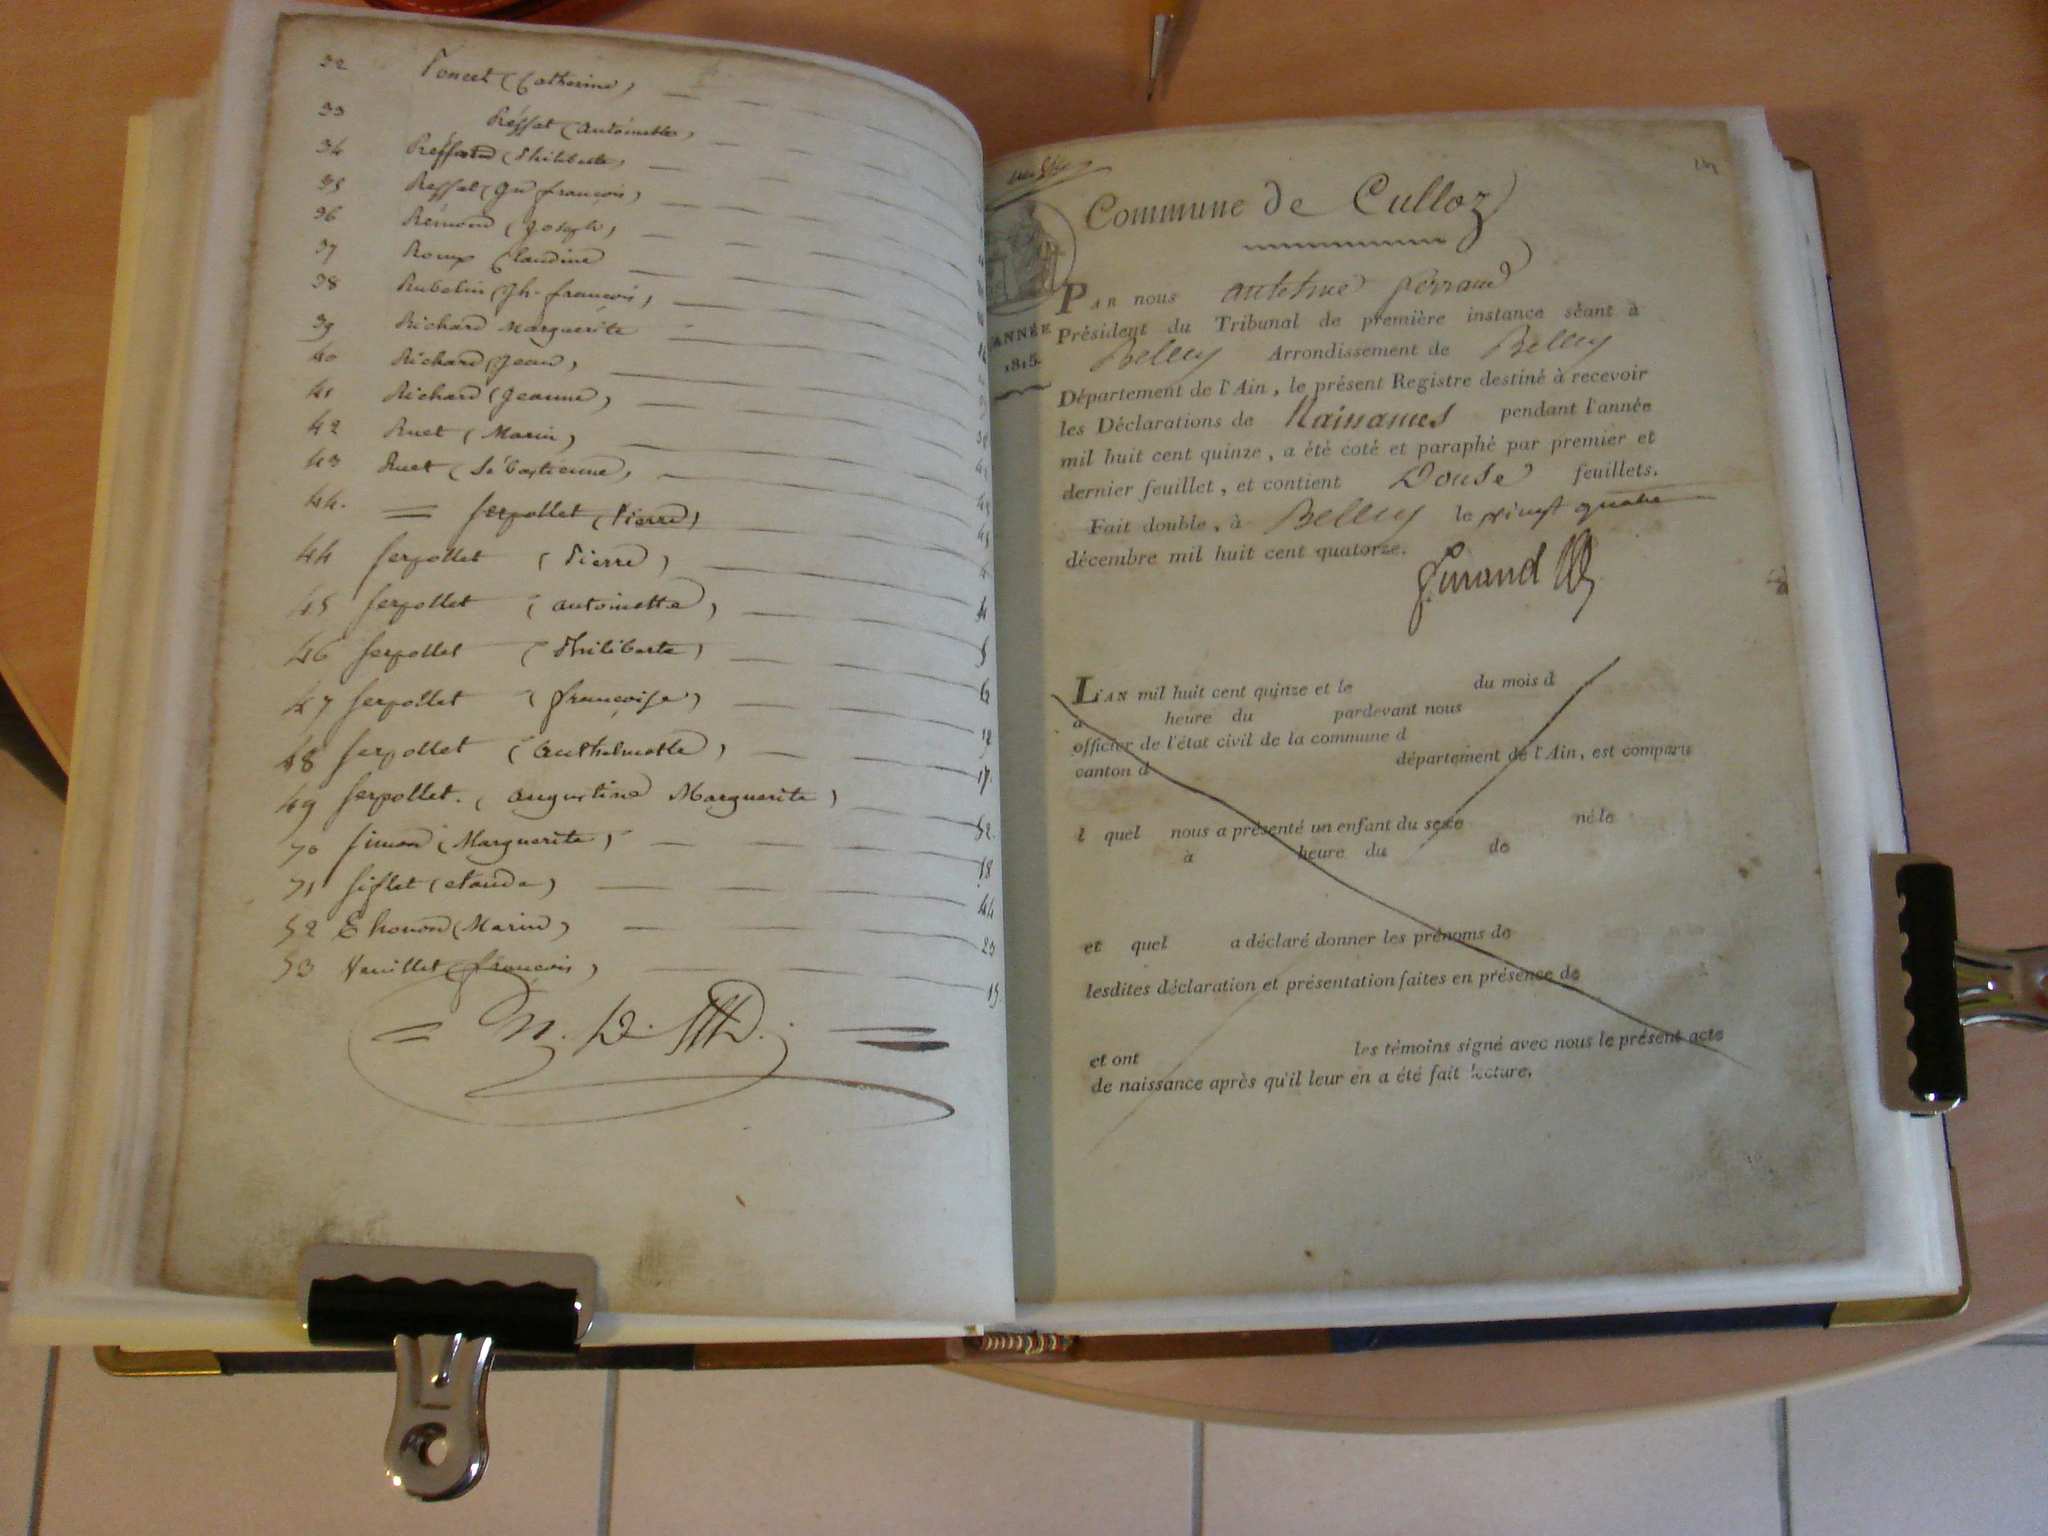 32 Poncet (Catherine)
33 Reffet (antoinette)
34 Reffand (Philiberte)
35 Reffet (Jn françois)
36 Rémond (Joseph)
37 Roux Claudine
38 Rubelin (Jh. françois)
39 Richard Marguerite
40 Richard (Jean)
41 Richard (Jeanne)
42 Ruet (Marin)
43 Ruet (Sébastienne) 45
44. = Serpollet (Pierre)
44 Serpollet (Pierre)
45 Serpollet (antoinette)
46 Serpollet (Philiberte) 5
47 Serpollet (françoise) 6
48 Serpollet (anthelmette)
49 Serpollet. (augustine Marguerite) 17.
50 Simon (Marguerite) 52.
51 Siflet (claude) 18
52 Thonon (Marin) 44
53 Vuillet (françois) 23
15.
Commune de Culloz
ANNÉE
1815.
PAR nous antelme ferrand
Président du Tribunal de première instance séant à
Belley Arrondissement de Belley
Département de l'Ain, le présent Registre destiné à recevoir
les Déclarations de Naissances pendant l'année
mil huit cent quinze, a été coté et paraphé par premier et
dernier feuillet, et contient Douse feuillets.
Fait double, à Belley le vingt quatre
décembre mil huit cent quatorze.
L'AN mil huit cent quinze et le du mois d
à heure du pardevant nous
officier de l'état civil de la commune d
canton d département de l'Ain, est comparu
l quel nous a présenté un enfant du sexe né le
à heure du de
et quel a déclaré donner les prénoms de
lesdites déclaration et présentation faites en présence de
et ont les témoins signé avec nous le présent acte
de naissance après qu'il leur en a été fait lecture.